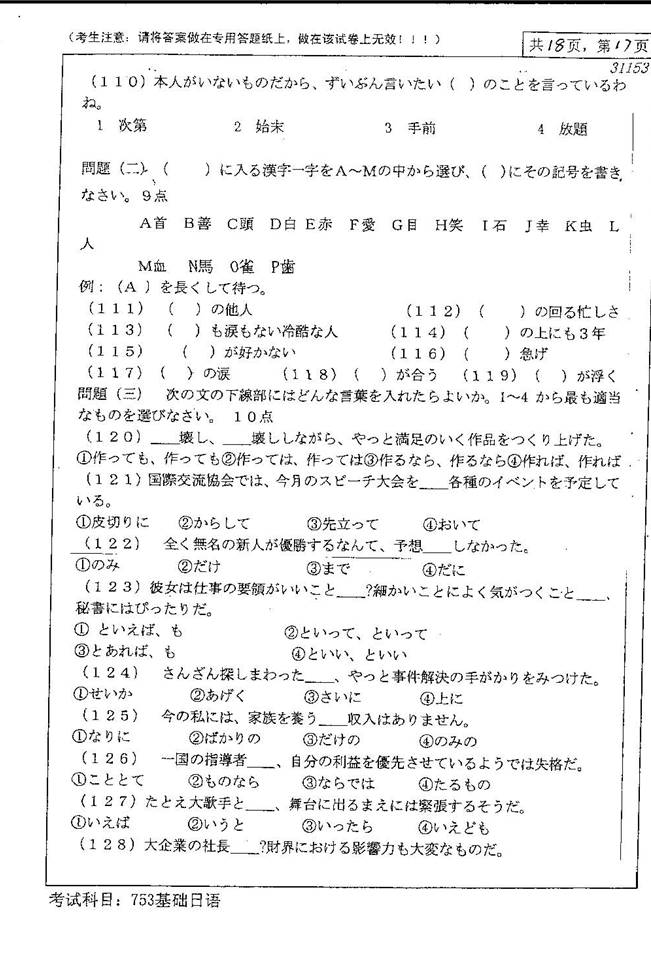 (考生注意：请将答案做在专用答题纸上，做在该试卷上无效！！！)
共18页，第17页
31153
(110)本人がいないものだから、ずいぶん言いたい( )のことを言っているわ
ね。
1 次第 2 始末 3 手前 4 放題
問題(二)、( )に入る漢字一字をA～Mの中から選び、( )にその記号を書き
なさい。9点
A首 B善 C頭 D白 E赤 F愛 G目 H笑 I石 J幸 K虫 L
人
M血 N馬 O雀 P歯
例：(A )を長くして待つ。
(111) ( )の他人 (112) ( )の回る忙しさ
(113) ( )も涙もない冷酷な人 (114) ( )の上にも3年
(115) ( )が好かない (116) ( )急げ
(117) ( )の涙 (118) ( )が合う (119) ( )が浮く
問題(三) 次の文の下線部にはどんな言葉を入れたらよいか。1～4 から最も適当
なものを選びなさい。 10点
(120) ___壊し、___壊ししながら、やっと満足のいく作品をつくり上げた。
①作っても、作っても②作っては、作っては③作るなら、作るなら④作れば、作れば
(121)国際交流協会では、今月のスピーチ大会を___各種のイベントを予定して
いる。
①皮切りに ②からして ③先立って ④おいて
(122) 全く無名の新人が優勝するなんて、予想___しなかった。
①のみ ②だけ ③まで ④だに
(123)彼女は仕事の要領がいいこと___?細かいことによく気がつくこと___、
秘書にはぴったりだ。
① といえば、も ②といって、といって
③とあれば、も ④といい、といい
(124) さんざん探しまわった___、やっと事件解決の手がかりをみつけた。
①せいか ②あげく ③さいに ④上に
(125) 今の私には、家族を養う___収入はありません。
①なりに ②ばかりの ③だけの ④のみの
(126) 一国の指導者___、自分の利益を優先させているようでは失格だ。
①こととて ②ものなら ③ならでは ④たるもの
(127)たとえ大歌手と___、舞台に出るまえには緊張するそうだ。
①いえば ②いうと ③いったら ④いえども
(128)大企業の社長___?財界における影響力も大変なものだ。
考试科目：753基础日语